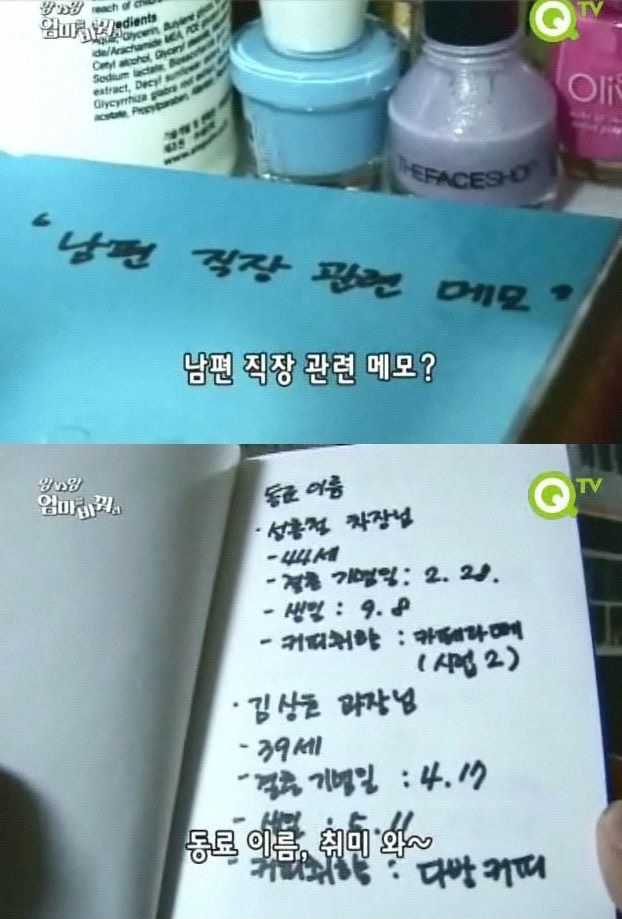 reach of children
Ingredients
Aqua, Glycerin, Butylene glycol
ide/Arachamide MEA, POE
Cetyl alcohol, Glyceryl
Sodium lactate, Biosaccharide
extract, Decyl
Glycyrrhiza glabra
acetate, Propylparaben,
왕vs왕
엄마를 바꿔라
Q TV
Oliv
THEFACESHOP
“남편 직장 관련 메모”
남편 직장 관련 메모?
왕vs왕
엄마를 바꿔라
Q TV
동료 이름
· 성흥철 차장님
- 44세
- 결혼 기념일 : 2. 28.
- 생일 : 9. 8
- 커피취향 : 카페라떼
(시럽 2)
· 김상훈 과장님
- 39세
- 결혼 기념일 : 4. 17
- 생일 : 5. 11
동료 이름, 취미 와~
- 커피취향 : 다방커피